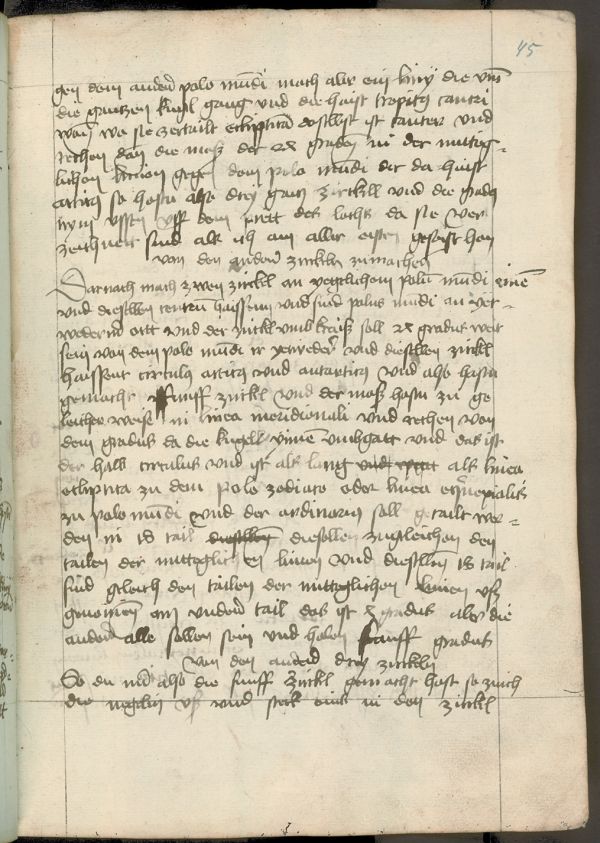 45
gen dem andern polo mundi mach aber ein liny die umb
die gantzen kugl gang und die haist tropicus cancri
wan wo sie zertailt eclipticam doselbst ist cancer und
rechen dan die maß der graden in der mittag-
lichen linien gegen dem polo mundi der da haist
articus so hastu also drey gantz zirckell und die
uff dem prett des lochs da sie ver
zeichnett sind als ich am aller ersten geseist hon
von den andern zirckeln zumachen
Darnach mach zwen zirckel an yegklichem polum mundi einen
und dieselben centrum haissenn und sind polus mundi an yet-
wederm ortt und der zirckl umb kraiß soll gradus weit
sein von dem polo mundi ir yetweder und dieselben zirckl
haissent circulus articus und antarticus und also hastu
gemacht funff zirckl und der maß hastu zu ge
leicher weise in linea meridionali und rechen von
dem gradus da die kugell umbgatt und das ist
der halb circulus und ist als lang als linea
ecliptica zu dem polo zodiaco oder linea equinoxialis
zu polo mundi und der ordinarius soll getailt wer-
den in 18 tail diesellen zugleichen den
tailen der mittaglichen linien und dieselben 18 tail
sind gleich den tailen der mittaglichen linien uß
genomen am undern tail das ist gradus aber die
andern alle sollen sein und haben funff gradus
von den andern drey zirckeln
So du nun also die funff zirckl gemacht hast so zuich
die negelin uß und steck eins in den zirckl